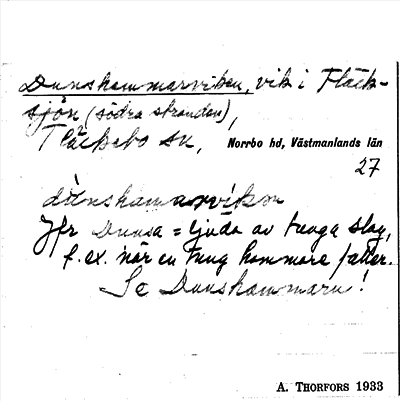 Dunshammarviken, vik i Fläck-
sjön (södra stranden),
Fläckebo sn, Norrbo hd, Västmanlands län
27
dùnshamarvikọn
Jfr Dunsa = ljuda av tunga slag,
f. ex. när en tung hammare faller.
Se Dunshammarn!
A. THORFORS 1933